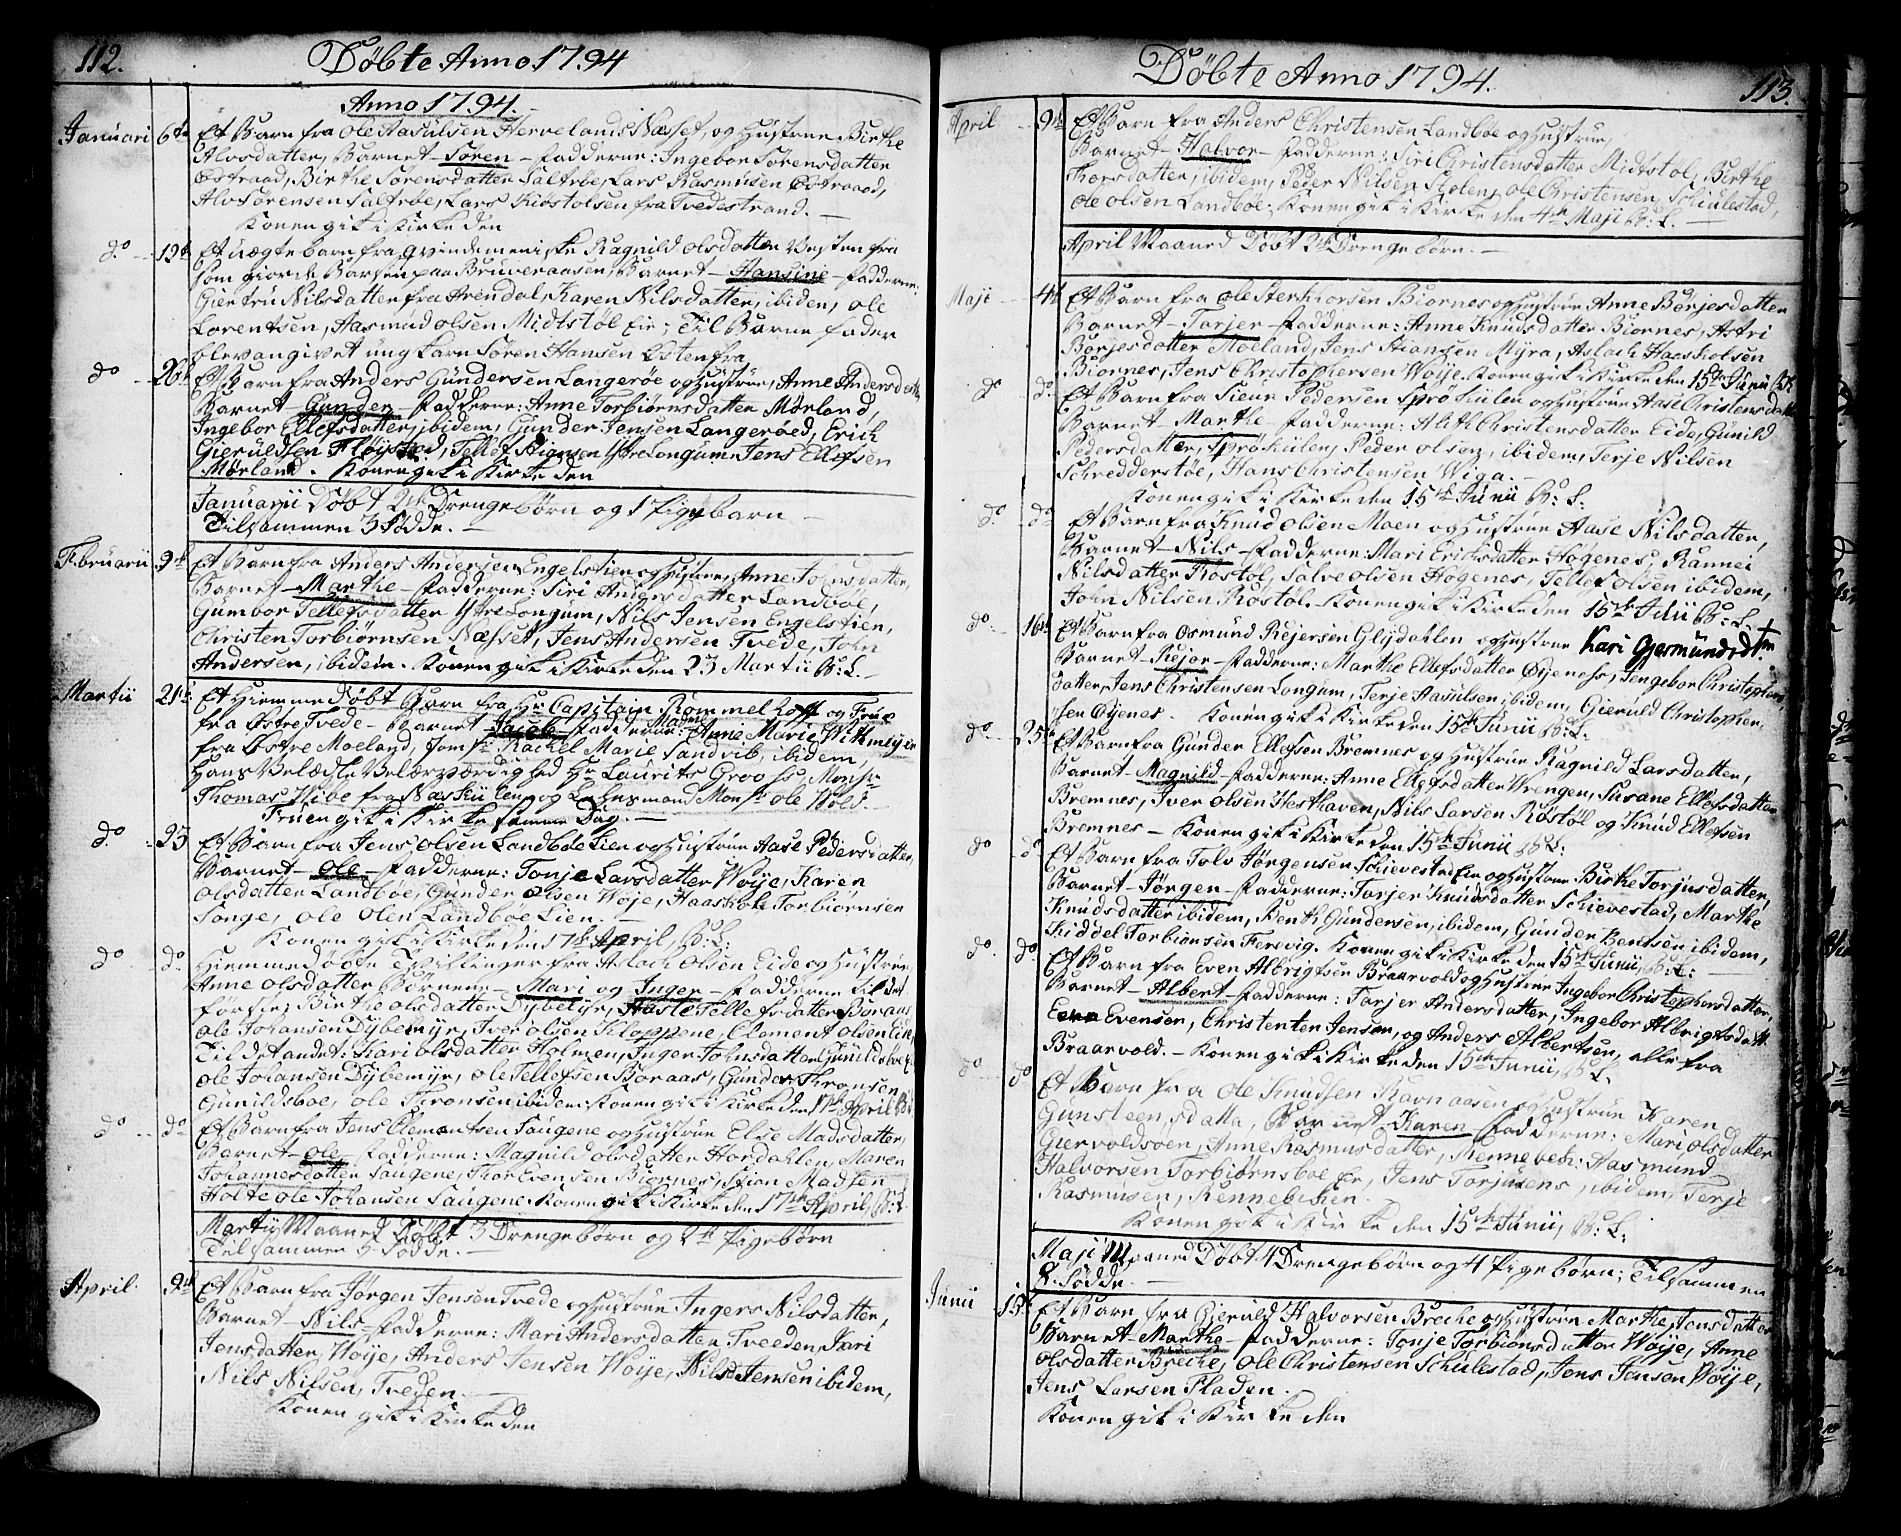 112.
Döbte Anno 1794
Anno 1794.
Januari 6te Et Barn fra Ole Aasulsen Hervelands Næsset, og Hustrue Birthe
Alvsdatter, Barnet - Sören - Fadderne: Ingebor Sörensdatter
Østraad, Birthe Sörensdatter Saltröe, Lars Rasmusen Østraad,
Alv Sörensen Saltröe, Lars Kiöstolsen fra Tvedestrand. -
Konen gik i Kirke den
do 19de Et uægte barn fra Qvindemeniske Ragnild Olsdatter Vesten fra
som giorde Barsel paa Bruveraasen, Barnet - Hansine - Fadderne:
Giertru Nilsdatter fra Arendal, Karen Nilsdatter, ibiden, Ole
Lorentsen, Aasmud Olsen Midtstöl Eie; Til Barne fader
blev angivet ung karn Sören Hansen Østenfra
do 26de Et Barn fra Anders Gundersen Langeröe og Hustrue, Anne Andersdatter
Barnet - Gunder - Fadderne: Anne Torbiörnsdatter Mörland,
Ingebor Ellefsdatter, ibidem, Gunder Jensen Langeröed, Erich
Gieruldsen Flöistad, Tellef Stiansen Yttre Longum, Jens Ellefsen
Mörland. Konen gik i Kirke den
Januarii Döbt 2de Drengebörn og 1 Pigebarn
Tilsammen 3 Födde. -
Februarii 9de Et Barn fra Anders Andersen Engelstien og Hustrue, Anne Johnsdatter,
Barnet - Marthe - Fadderne: Siri Andersdatter Landböe,
Gumbor Tellefsdatter Yttre Longum, Nils Jensen Engelstien,
Christen Torbiörnsen Næsset, Jens Andersen Tvede, John
Andersen, ibidem. Konen gik i Kirke den 23 Martii B: L. -
Martii 21de Et Hiemme Döbt Barn fra Hr Capitain Rommelhoff og Frue
fra Østre Tvede - Barnet Jacob - Fadderne: Madme Anne Marie Withmejer
fra Østre Moeland, Jomfr Rachel Marie Sandvib, ibidem,
Hans Velædle Velærværdighed Hr Laurits Grooss, Monsr
Thomas Vibe fra Naskülen, og Lensmand Monsr Ole Bold. -
Fruen gik i Kirke samme Dag. -
do 23 Et Barn fra Jens Olsen Landböe Lien og Hustrue Aase Pedersdatter,
Barnet - Ole - Fadderne: Tonje Larsdatter Woije, Karen
Olsdatter Landböe, Gunder Olsen Woje, Haaskol Torbiörnsen
Songe, Ole Olen Landboe Lien. -
Konen gik i Kirke den 17de April, B: L:
do do Hiemmedöbte Tvillinger fra Aslach Olsen Eide og Hustrue
Anne Olsdatter Börnene - Mari og Inger - Fadderne til det
förste: Birthe Olsdatter Dybemyr, Aaste Tellefsdatter Boraas
Ole Johansen Dybemyr, Iver Olsen Kloppene, Clement Olsen Eide,
Til det andet: Kari Olsdatter Holmen, Inger Johnsdatter Gunildsboe
Ole Johansen Dybemyr, Ole Tellefsen Boraas, Gunder Thronsen
Gunildsboe, Ole Thronsen ibidem. Konen gik i Kirke den 17de April B: L
do do Et Barn fra Jens Clementsen Saugene og Hustrue Else Madsdatter,
Barnet - Ole - Fadderne: Magnild Olsdatter Hordahlen, Maren
Johannesdatter Saugene, Thor Evensen Biornes, Stian Madsen
Holte Ole Johansen Saugene. Konen gik i Kirke den 17de April, B: L
Martii Maaned Döbt 3 Drengebörn og 2de Pigebörn
Tilsammen 5 Födde. -
April 9de Et Barn fra Jörgen Jensen Tvede og Hustrue Ingers Nilsdatter,
Barnet - Nils - Fadderne: Mari Andersdatter, Tveeden, Kari
Jensdatter, Woije, Anders Jensen Woije, Nils Jensen ibidem,
Nils Nilsen, Tveden. -
Konen gik i Kirke den
113.
Döbte Anno 1794.
April 9de Et Barn fra Anders Christensen Landböe og Hustrue,
Barnet - Halvor - Fadderne: Siri Christensdatter Midtstöl, Birthe
Thorsdatter, ibidem, Peder Nilsen Stölen, Ole Christensen, Schiulestad,
Ole Olsen Landböe. Konen gik i Kirke den 4de Maji B: L.
April Maaned Döbt 2de Drengebörn. -
Maji 4de Et Barn fra Ole Sterkiorsen Biornes og Hustrue Anne Börjesdatter
Barnet - Tarjer - Fadderne: Anne Knudsdatter Biornes, Astri
Börjesdatter Moeland, Jens Stiansen Myra, Aslach Haaskolsen
Biornes, Jens Christophersen Woije. Konen gik i Kirke den 15de Junii B:L
do do. Et Barn fra Sieur Pedersen Sprökulen og Hustrue Aase Christensdatter
Barnet - Marthe - Fadderne: Alith Christensdatter Eide, Gunild
Pedersdatter, Sprökulen, Peder Olsen, ibidem, Terje Nilsen
Schredderstöe, Hans Christensen Wiga. -
Konen gik i Kirke den 15de Junii B: L.
do do Et Barn fra Knud Olsen Moen og Hustrue Aase Nilsdatter,
Barnet - Nils - Fadderne: Mari Erichsdatter Högenes, Rannei
Nilsdatter Röstöl, Salve Olsen Högenes, Tellef Olsen ibidem,
John Nilsen, Röstöl. Konen gik i Kirke den 15de Julii B: L.
do 16de Et Barn fra Osmund Rejersen Glijdahlen og Hustrue Kari Gjermundsdtr
Barnet - Rejor - Fadderne: Marthe Ellefsdatter Øijeness, Jengebor Christophers
datter, Jens Christensen Longum, Terje Aasulsen, ibidem, Gieruld Christopher
sen Öijenes. Konen gik i Kirke den 15de Junii B: L.
do 25de Et Barn fra Gunder Ellefsen Bremnes og Hustrue Ragnild Larsdatter,
Barnet - Magnild - Fadderne: Anne Ellefsdatter Wrengen, Susane Ellefsdatter
Bremnes, Iver Olsen Hesthaven, Nils Larsen Röstöl og Knud Ellefsen
Bremnes - Konen gik i Kirke den 15de Junii B: L:
do do Et Barn fra Tolv Jörgensen Schievestad Eie og Hustrue Birthe Torjusdatter,
Barnet - Jörgen - Fadderne: Tarjer Knudsdatter Schievestad, Marthe
Knudsdatter ibidem, Benth Gundersen, ibidem, Gunder Bentsen ibidem,
Kiddel Torbionsen Ferevig. Konen gik i Kirke den 15de Junii, B: L: -
do do Et Barn fra Even Albrigtsen Braarvold og Hustrue Ingebor Christophersdatter,
Barnet - Albert - Fadderne: Tarjer Andersdatter, Ingebor Albrigtsdatt.
Evensen, Christenten Jensen, og Anders Albertsen, alle fra
Braarvold. - Konen gik i Kirke den 15de Junii, B: L.
do do Et Barn fra Ole Knudsen Ravnaasen og Hustrue Karen
Gunsteensdatter, Barnet - Karen - Fadderne: Mari Olsdatter
Giervoldsoen, Anne Rasmusdatter, Rennebech: Aasmund
Halvorsen Torbiörnsboe Eie, Jens Torjusens, ibidem, Terje
Rasmusen, Rennebechen.
Konen gik i Kirke den 15de Junii, B: L.
Maji Maaned Döbt 4 Drengebörn og 4 Pigebörn; Tilsammen
8. Födde. -
Junii 15de Et Barn fra Gieruld Halvorsen Breche og Hustrue Marthe Jensdatter
Barnet - Marthe - Fadderne: Tonje Torbionsdatter Woije, Anne
Olsdatter Breche, Ole Christensen Schulestad, Jens Jensen Woije,
Jens Larsen Fladen.
Konen gik i Kirke den